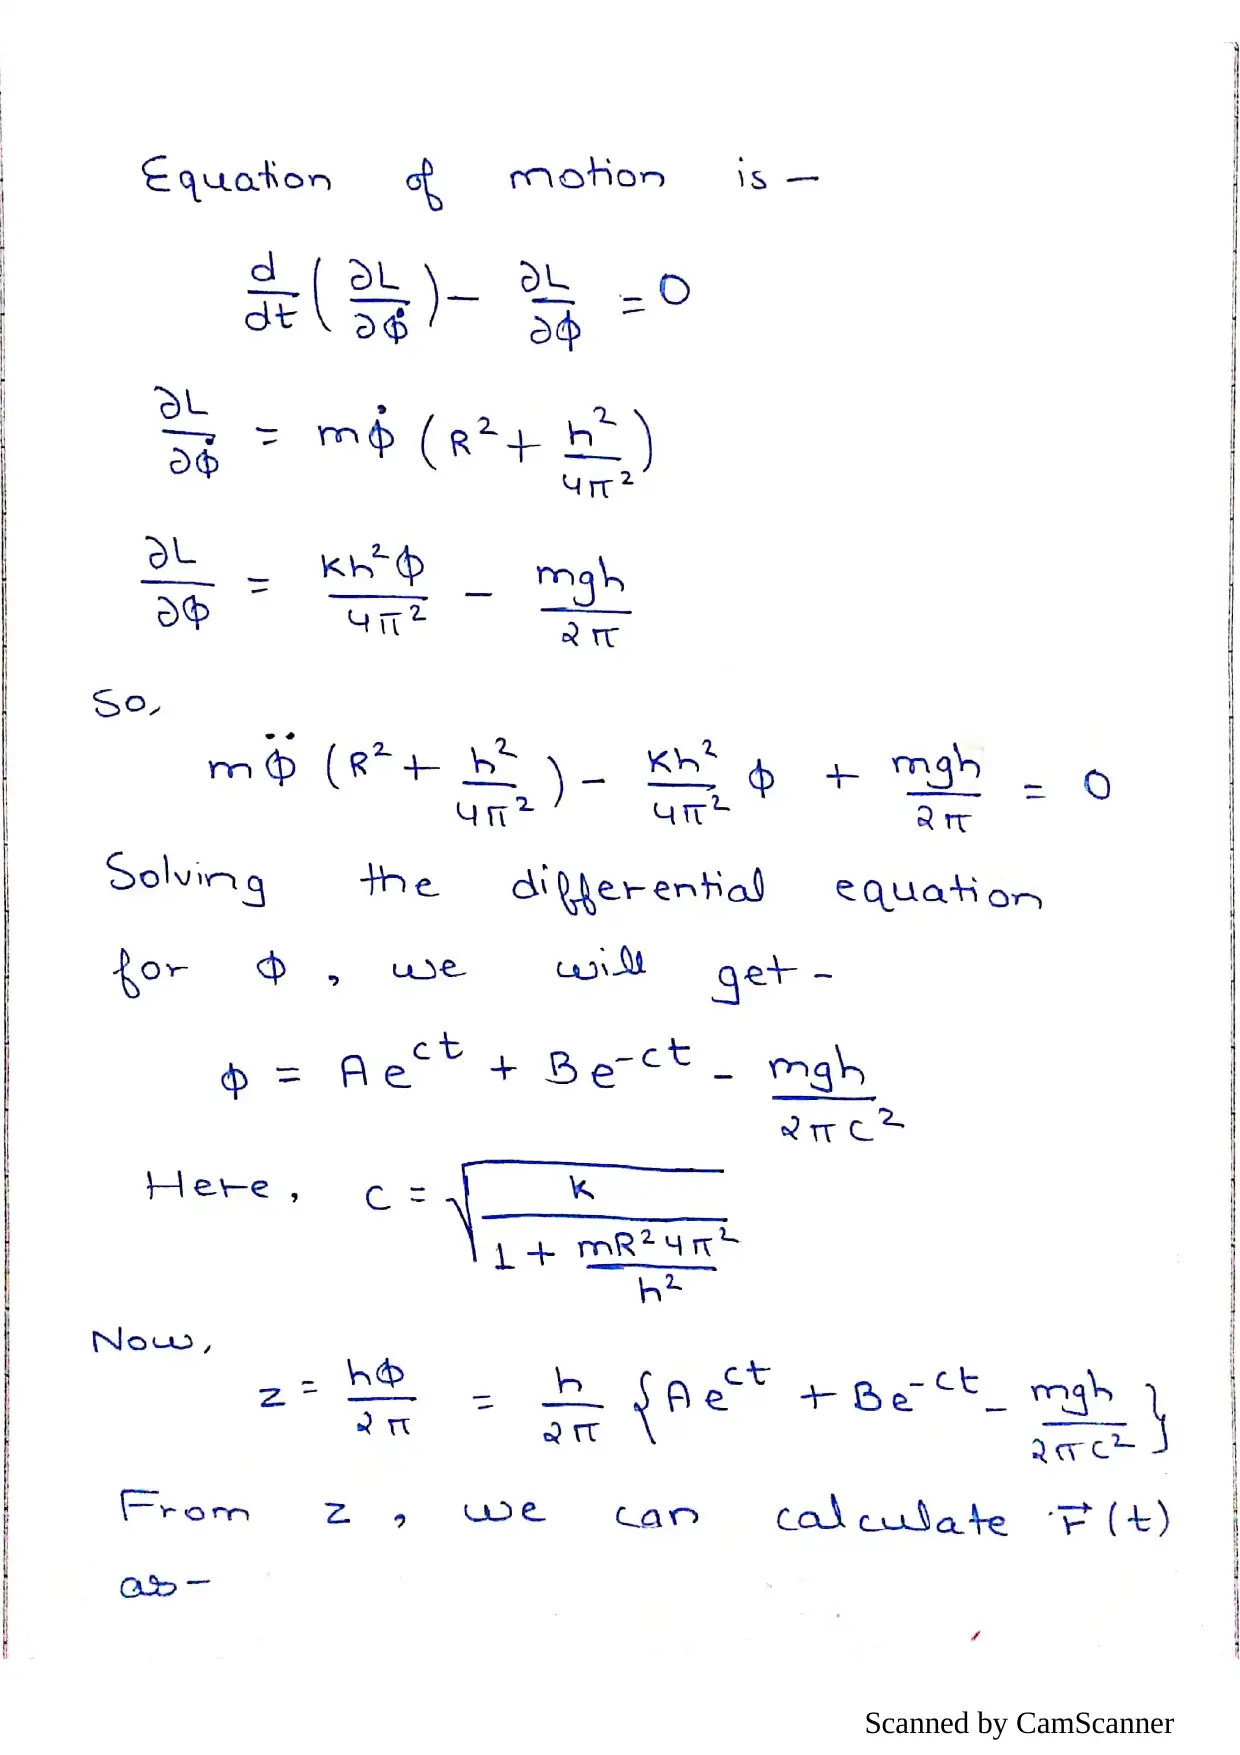 Equation of motion is -
d/dt (∂L/∂φ̇) - ∂L/∂φ = 0
∂L/∂φ̇ = mφ̇ (R² + h²/4π²)
∂L/∂φ = Kh²φ/4π² - mgh/2π
So,
mφ̈ (R² + h²/4π²) - Kh²/4π² φ + mgh/2π = 0
Solving the differential equation
for φ, we will get -
φ = Ae^ct + Be^-ct - mgh/2πc²
Here, c = √(K/(1 + mR²4π²/h²))
Now,
z = hφ/2π = h/2π {Ae^ct + Be^-ct - mgh/2πc²}
From z, we can calculate F⃗(t)
as -
Scanned by CamScanner